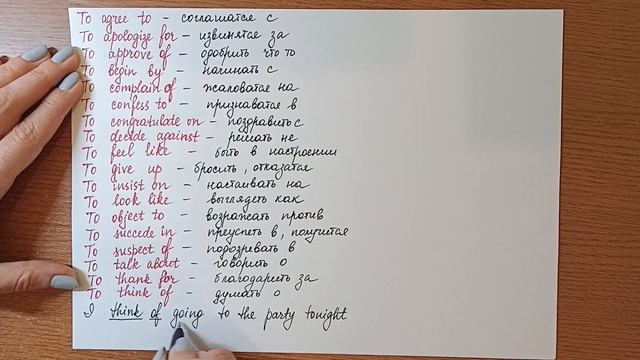 To agree to - соглашатся с
To apologize for - извинятся за
To approve of - одобрить что то
To begin by - начинать с
To complain of - жаловатся на
To confess to - признаватся в
To congratulate on - поздравить с
To decide against - решать не
To feel like - быть в настроении
To give up - бросить, отказатся
To insist on - настаивать на
To look like - выглядеть как
To object to - возражать против
To succede in - преуспеть в, получится
To suspect of - подозревать в
To talk about - говорить о
To thank for - благодарить за
To think of - думать о
I think of going to the party tonight